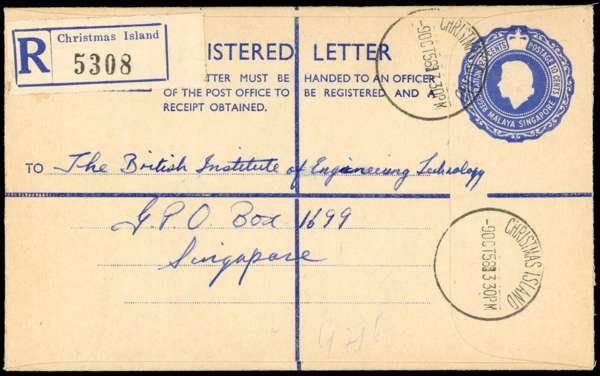 R Christmas Island
5308
ISTERED LETTER
TTER MUST BE HANDED TO AN OFFICER
OF THE POST OFFICE TO BE REGISTERED AND A
RECEIPT OBTAINED.
CHRISTMAS
-9OCT58 3 30PM
POSTAGE 10 CENTS
MALAYA SINGAPORE
TO The British Institute of Engineering Technology
G.P.O. Box 1699
Singapore
CHRISTMAS ISLAND
-9OCT58 3 30PM